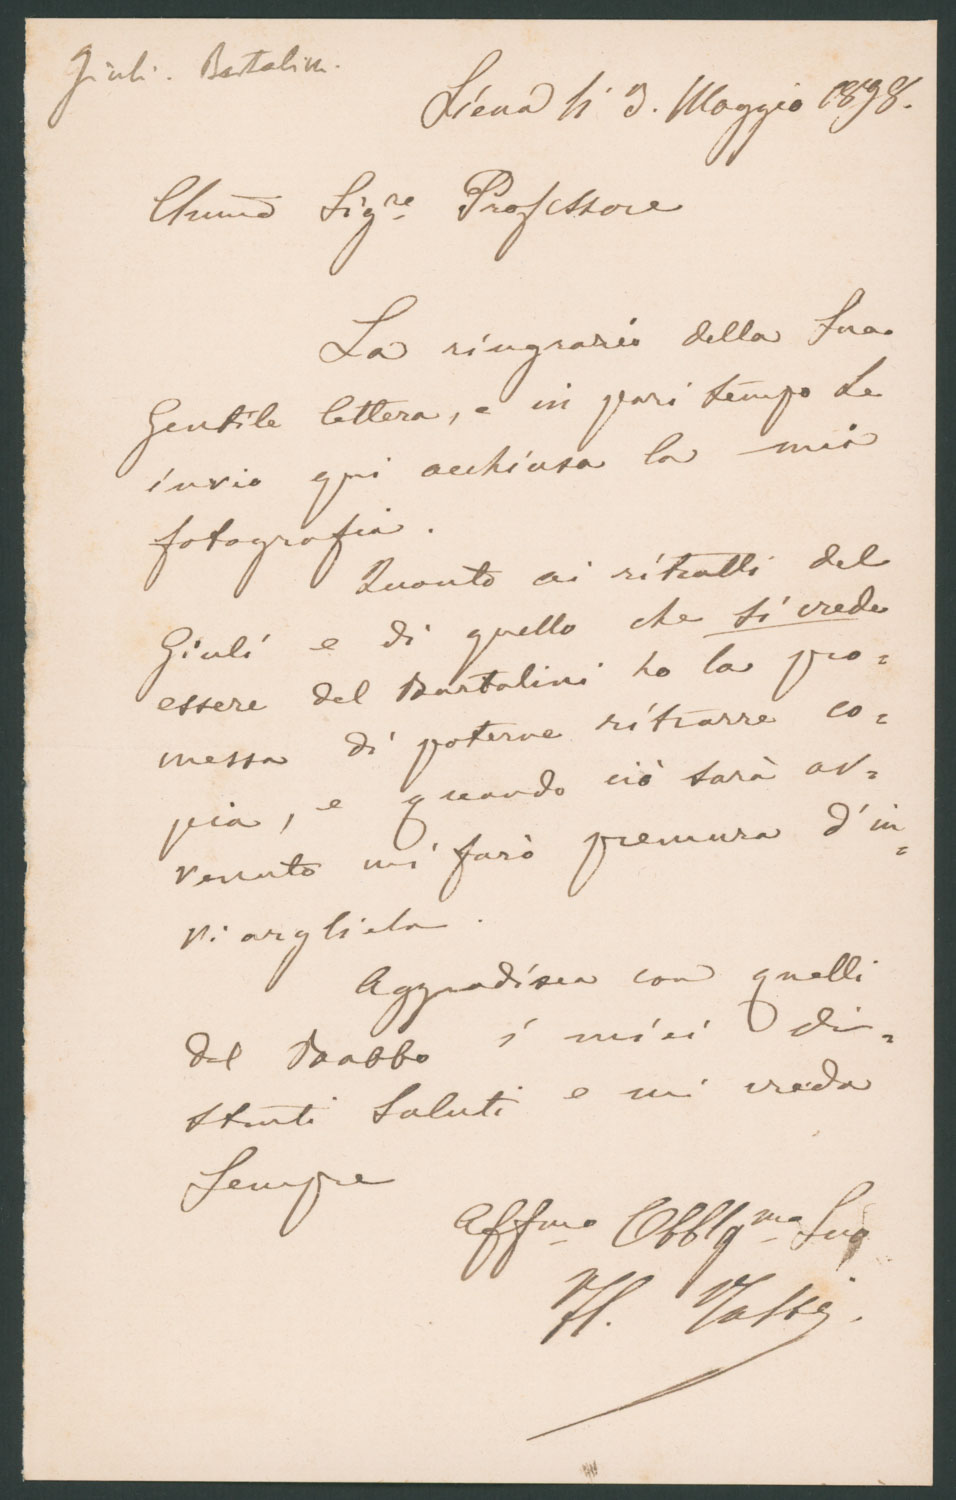 Giuli. Bartalini.
Siena li 3. Maggio 1898.
Chiũo Sigre. Professore
La ringrazio della Sua
Gentile lettera, e in pari tempo Le
invio qui acchiusa la mia
fotografia.
Quanto ai ritratti del
Giuli e di quello che si crede
essere del Bartalini ho la pro=
messa di poterne ritrarre co=
pia, e quando ciò sarà av=
venuto mi farò premura d'in=
viargliela.
Aggradisca con quelli
del Babbo i miei di=
stinti saluti e mi creda
Sempre
Affmo Obblgmo Suo